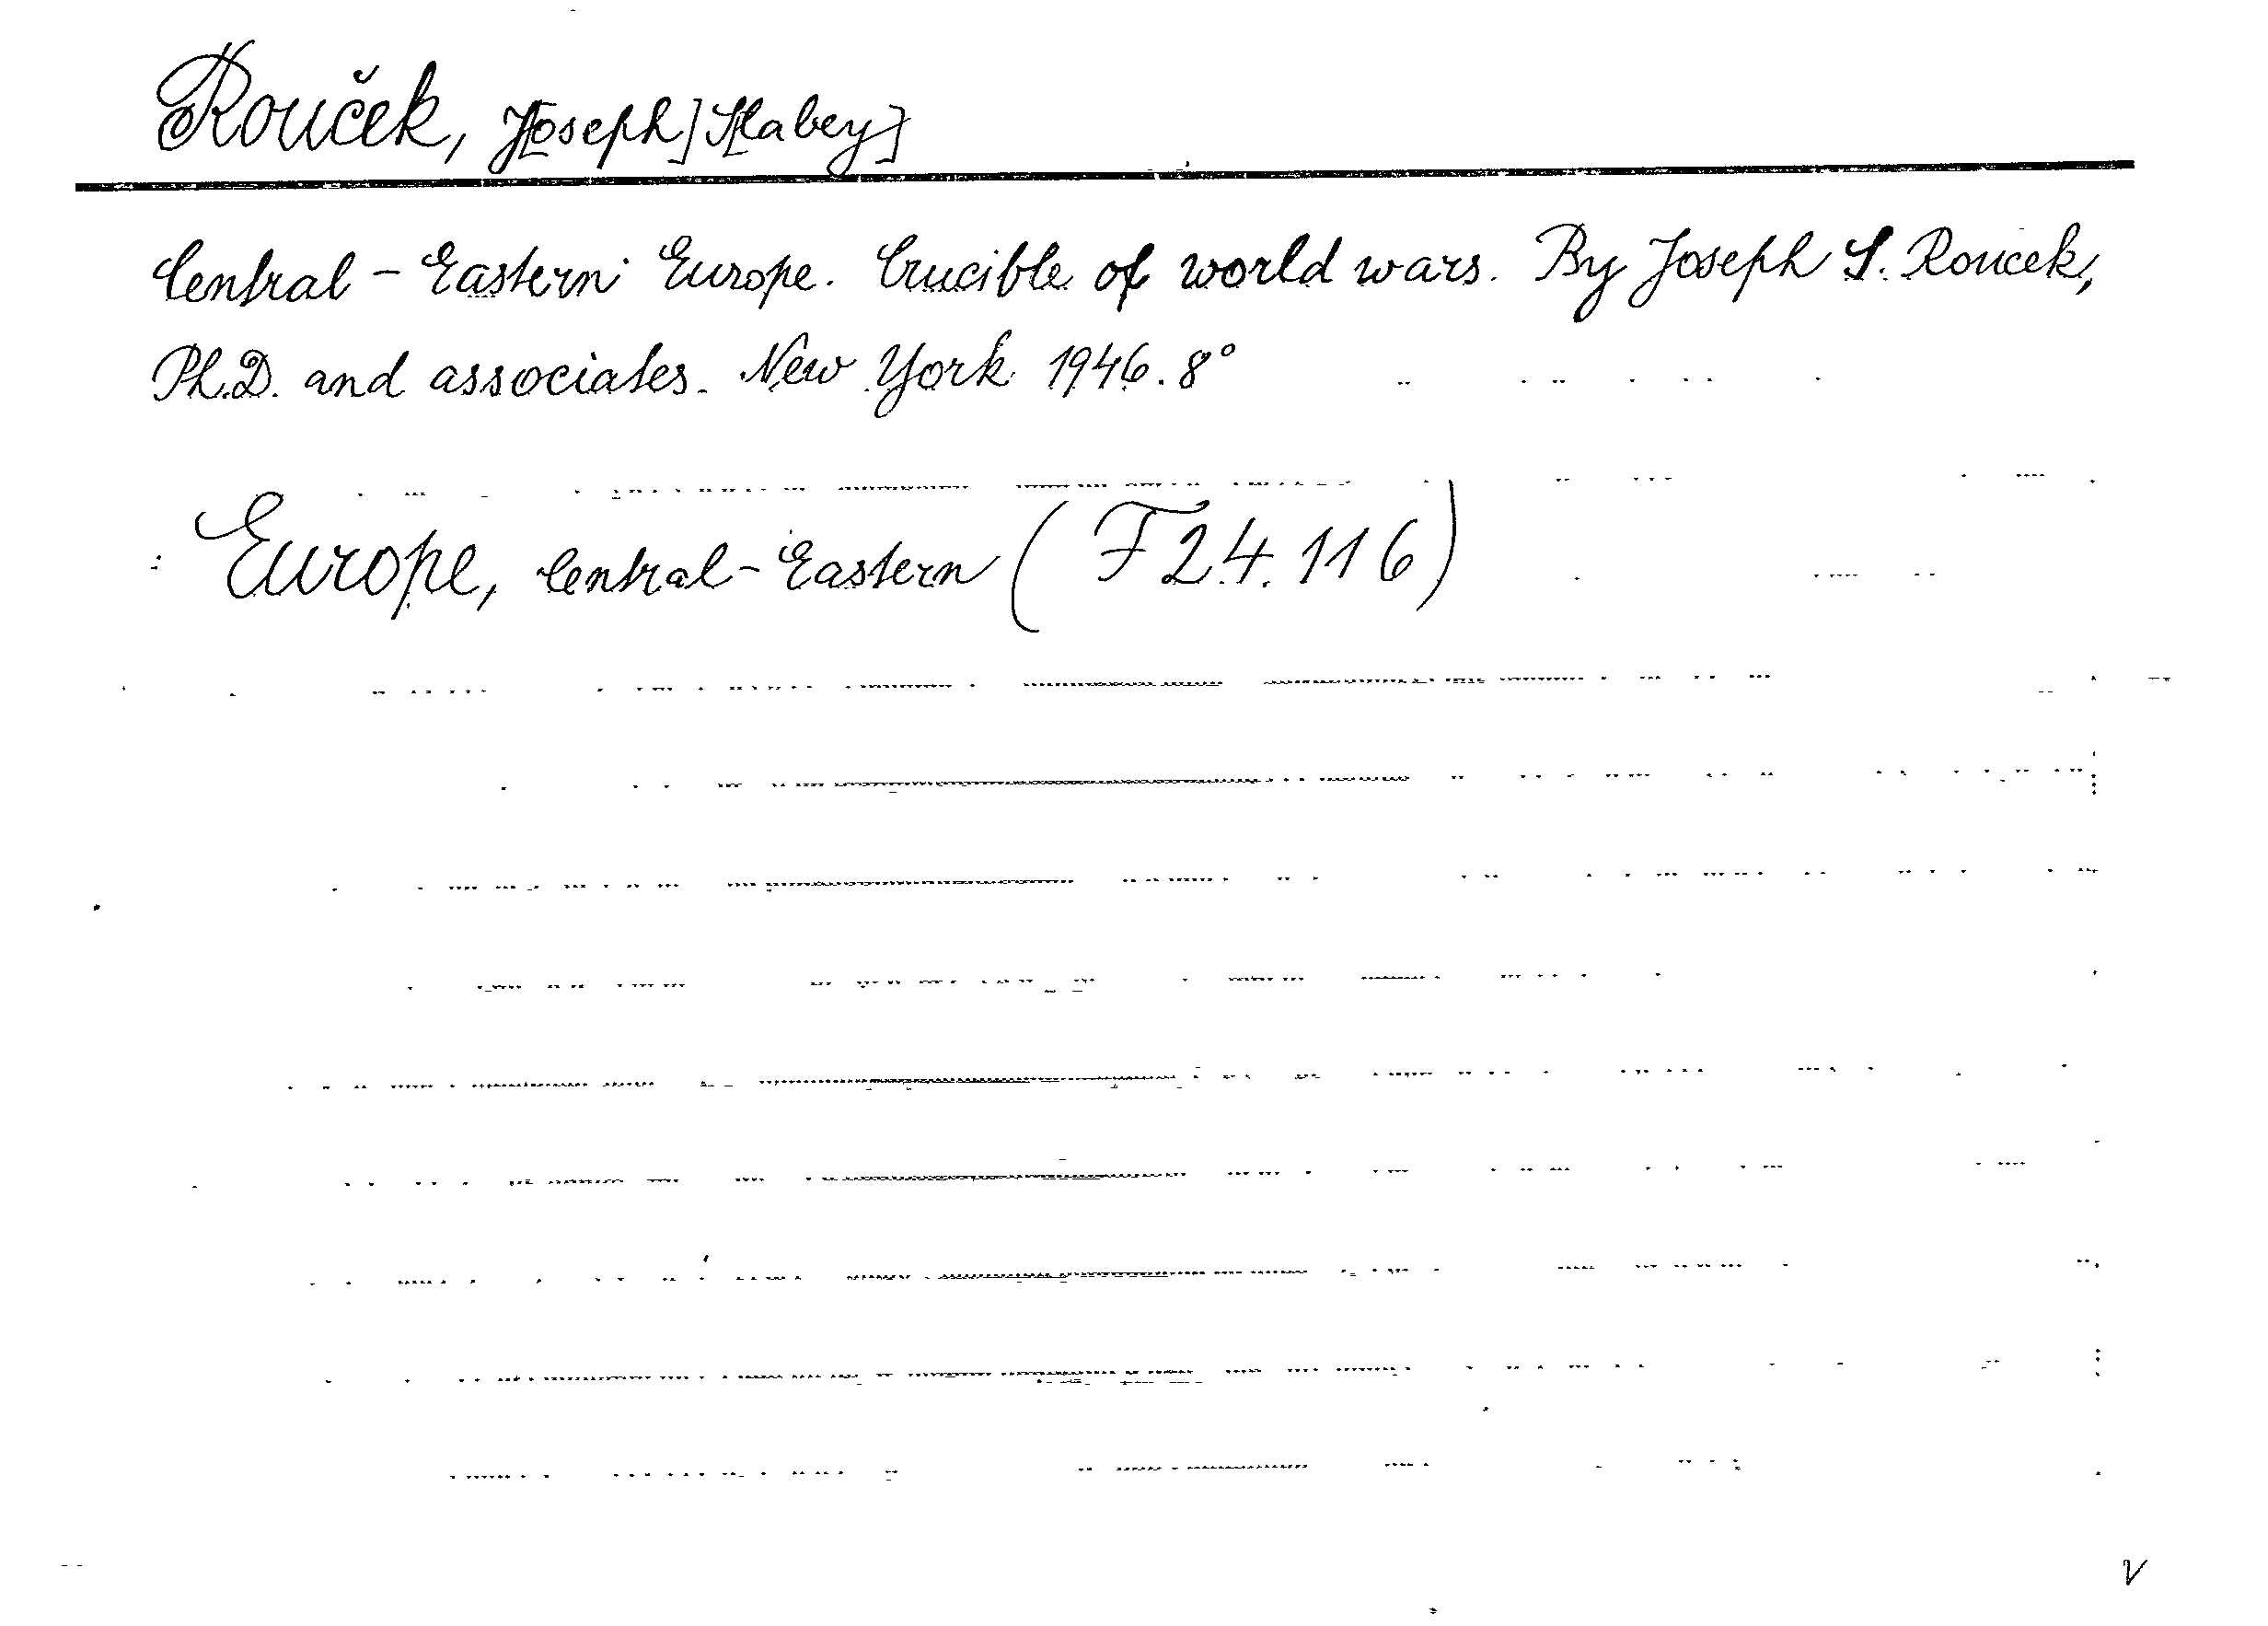 Rouček, J[oseph] S[labey]
Central-Eastern Europe. Crucible of world wars. By Joseph S. Roucek,
Ph.D. and associates. New York 1946. 8°
Europe, Central-Eastern (F 24.116)
V